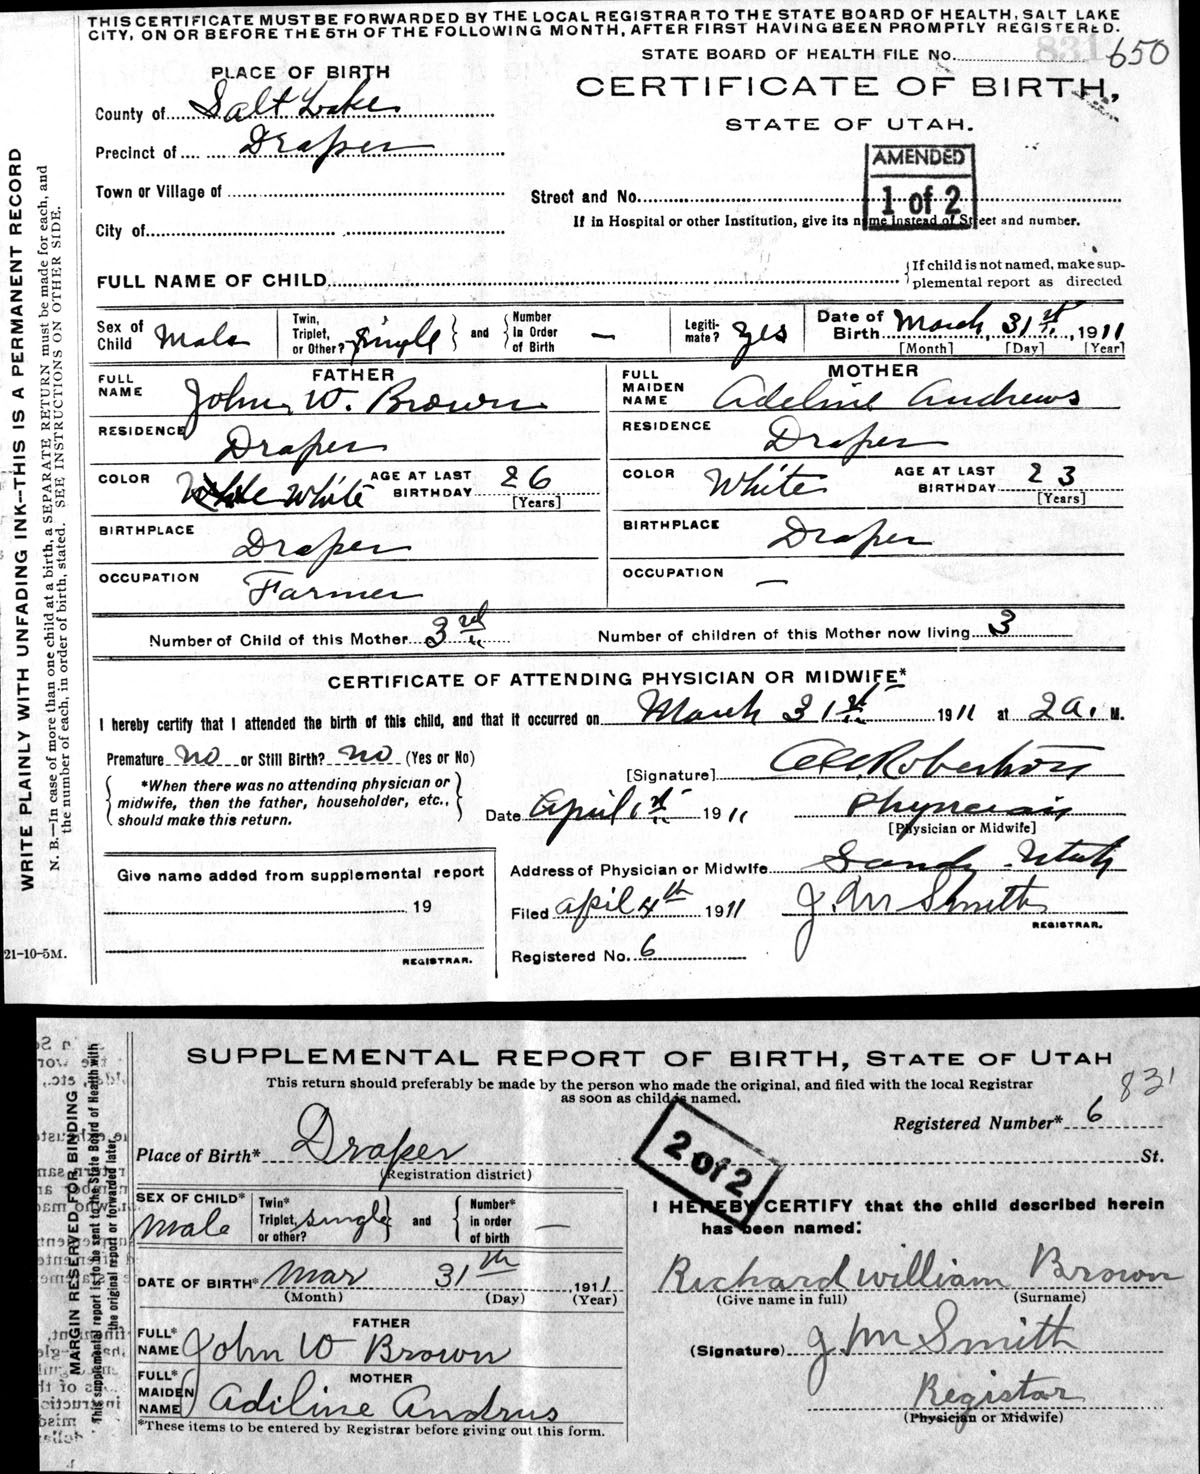 THIS CERTIFICATE MUST BE FORWARDED BY THE LOCAL REGISTRAR TO THE STATE BOARD OF HEALTH, SALT LAKE
CITY, ON OR BEFORE THE 5TH OF THE FOLLOWING MONTH, AFTER FIRST HAVING BEEN PROMPTLY REGISTERED.
STATE BOARD OF HEALTH FILE No. 831 650
PLACE OF BIRTH
CERTIFICATE OF BIRTH,
County of Salt Lake
STATE OF UTAH.
Precinct of Draper
AMENDED
1 of 2
Town or Village of
Street and No.
If in Hospital or other Institution, give its name instead of Street and number.
City of
FULL NAME OF CHILD
{If child is not named, make sup-
plemental report as directed
Sex of Child Male
Twin, Triplet, or Other? single } and { Number in Order of Birth —
Legiti-mate? yes
Date of Birth March, 31st, 1911
[Month] [Day] [Year]
FATHER
FULL NAME John W. Brown
RESIDENCE Draper
COLOR White AGE AT LAST BIRTHDAY 26
[Years]
BIRTHPLACE Draper
OCCUPATION Farmer
MOTHER
FULL MAIDEN NAME Adeline Andrews
RESIDENCE Draper
COLOR White AGE AT LAST BIRTHDAY 23
[Years]
BIRTHPLACE Draper
OCCUPATION —
Number of Child of this Mother 3rd
Number of children of this Mother now living 3
CERTIFICATE OF ATTENDING PHYSICIAN OR MIDWIFE*
I hereby certify that I attended the birth of this child, and that it occurred on March 31st 1911 at 2 a. M.
Premature no or Still Birth? no (Yes or No)
*When there was no attending physician or
midwife, then the father, householder, etc.,
should make this return.
[Signature] Robertson
Date April 1st 1911
Physician
[Physician or Midwife]
Address of Physician or Midwife Sandy Utah
Filed April 4th 1911 J. M Smith
REGISTRAR.
Registered No. 6
Give name added from supplemental report
19
REGISTRAR.
21-10-5M.
WRITE PLAINLY WITH UNFADING INK--THIS IS A PERMANENT RECORD
N. B.—In case of more than one child at a birth, a SEPARATE RETURN must be made for each, and
the number of each, in order of birth, stated. SEE INSTRUCTIONS ON OTHER SIDE.
SUPPLEMENTAL REPORT OF BIRTH, STATE OF UTAH
This return should preferably be made by the person who made the original, and filed with the local Registrar
as soon as child is named.
831
Registered Number* 6
2 of 2
Place of Birth* Draper St.
(Registration district)
SEX OF CHILD* Male
Twin* Triplet, or other? single } and { Number* in order of birth —
DATE OF BIRTH* Mar 31th, 1911
(Month) (Day) (Year)
FATHER
FULL* NAME John W Brown
MOTHER
FULL* MAIDEN NAME Adiline Andrus
*These items to be entered by Registrar before giving out this form.
I HEREBY CERTIFY that the child described herein
has been named:
Richard William Brown
(Give name in full) (Surname)
(Signature) J M Smith
Registar
(Physician or Midwife)
MARGIN RESERVED FOR BINDING
This supplemental report is to be sent to the State Board of Health with
the original report or forwarded later.